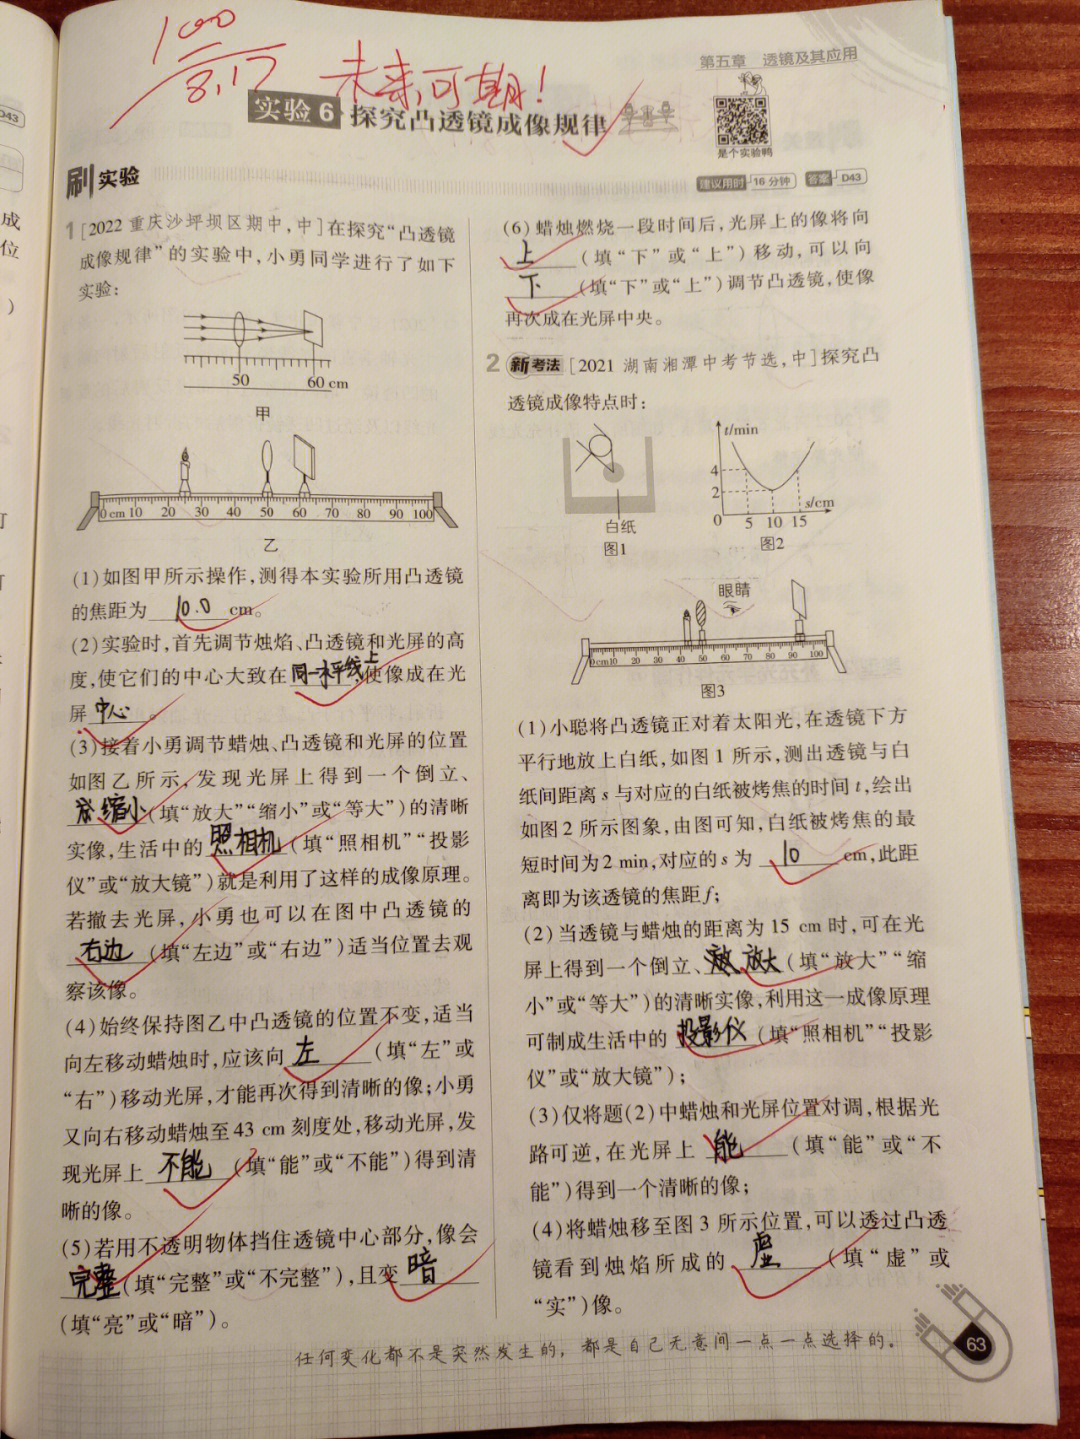 100
8.17
未来可期!
第五章 透镜及其应用
实验6 探究凸透镜成像规律
是个实验鸭
刷 实验
建议用时 16分钟 答案 D43
1 [2022重庆沙坪坝区期中,中]在探究“凸透镜
成像规律”的实验中,小勇同学进行了如下
实验:
50 60 cm
甲
0 cm 10 20 30 40 50 60 70 80 90 100
乙
(1)如图甲所示操作,测得本实验所用凸透镜
的焦距为 10.0 cm。
(2)实验时,首先调节烛焰、凸透镜和光屏的高
度,使它们的中心大致在 同一水平线上 ,使像成在光
屏 中心 。
(3)接着小勇调节蜡烛、凸透镜和光屏的位置
如图乙所示,发现光屏上得到一个倒立、
缩小 (填“放大”“缩小”或“等大”)的清晰
实像,生活中的 照相机 (填“照相机”“投影
仪”或“放大镜”)就是利用了这样的成像原理。
若撤去光屏,小勇也可以在图中凸透镜的
右边 (填“左边”或“右边”)适当位置去观
察该像。
(4)始终保持图乙中凸透镜的位置不变,适当
向左移动蜡烛时,应该向 左 (填“左”或
“右”)移动光屏,才能再次得到清晰的像;小勇
又向右移动蜡烛至43 cm刻度处,移动光屏,发
现光屏上 不能 (填“能”或“不能”)得到清
晰的像。
(5)若用不透明物体挡住透镜中心部分,像会
完整 (填“完整”或“不完整”),且变 暗
(填“亮”或“暗”)。
(6)蜡烛燃烧一段时间后,光屏上的像将向
上 (填“下”或“上”)移动,可以向
下 (填“下”或“上”)调节凸透镜,使像
再次成在光屏中央。
2 新考法 [2021 湖南湘潭中考节选,中]探究凸
透镜成像特点时:
白纸
图1
t/min
4
2
0 5 10 15 s/cm
图2
眼睛
0cm10 20 30 40 50 60 70 80 90 100
图3
(1)小聪将凸透镜正对着太阳光,在透镜下方
平行地放上白纸,如图1所示,测出透镜与白
纸间距离s与对应的白纸被烤焦的时间t,绘出
如图2所示图象,由图可知,白纸被烤焦的最
短时间为2 min,对应的s为 10 cm,此距
离即为该透镜的焦距f;
(2)当透镜与蜡烛的距离为15 cm时,可在光
屏上得到一个倒立、 放大 (填“放大”“缩
小”或“等大”)的清晰实像,利用这一成像原理
可制成生活中的 投影仪 (填“照相机”“投影
仪”或“放大镜”);
(3)仅将题(2)中蜡烛和光屏位置对调,根据光
路可逆,在光屏上 能 (填“能”或“不
能”)得到一个清晰的像;
(4)将蜡烛移至图3所示位置,可以透过凸透
镜看到烛焰所成的 虚 (填“虚”或
“实”)像。
任何变化都不是突然发生的,都是自己无意间一点一点选择的。
63
D43
成
位